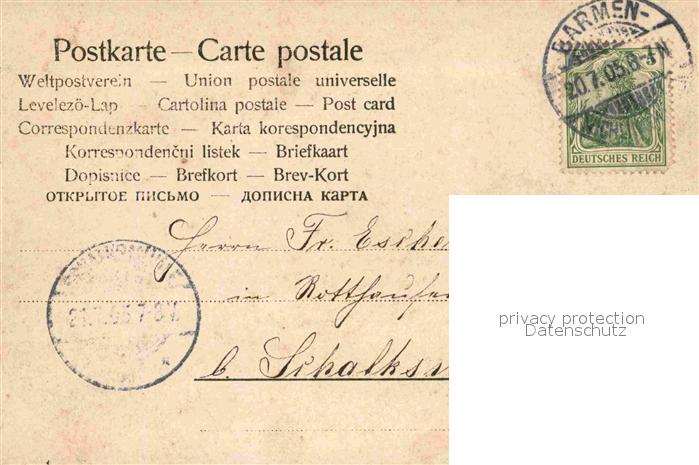 Postkarte — Carte postale
Weltpostverein — Union postale universelle
Levelező-Lap — Cartolina postale — Post card
Correspondenzkarte — Karta korespondencyjna
Korrespondenční listek — Briefkaart
Dopisnice — Brefkort — Brev-Kort
ОТКРЫТОЕ ПИСЬМО — ДОПИСНА КАРТА
BARMEN-
20.7.05.6-7N
DEUTSCHES REICH
Herrn Fr. Esche
in Rotthause
21.7.05.7-8V.
b. Schalks
privacy protection
Datenschutz